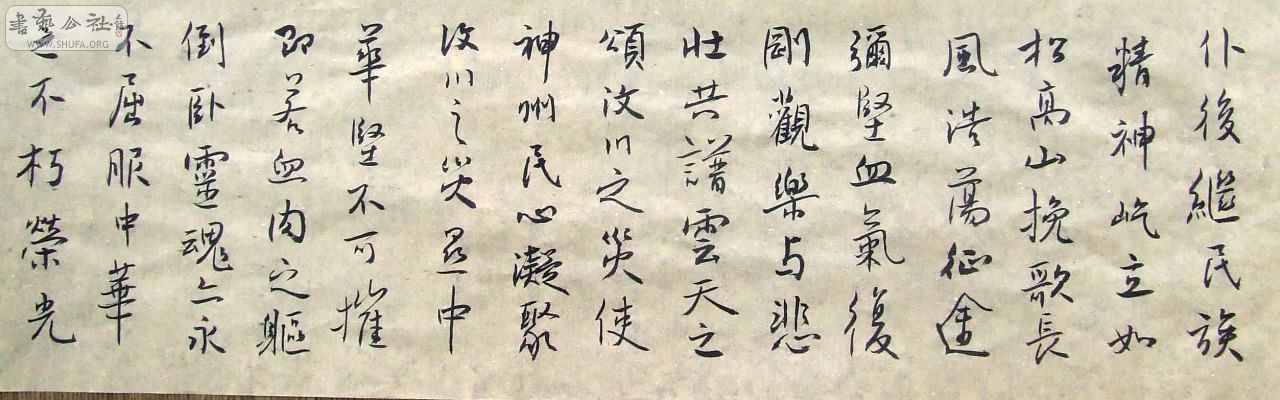 仆後繼民族
精神屹立如
松高山挽歌長
風浩蕩征途
彌堅血氣復
剛觀樂與悲
壯共譜雲天之
頌汶川之災使
神州民心凝聚
汶川之災是中
華堅不可摧
即若血肉之軀
倒臥靈魂亦永
不屈服中華
之不朽榮光
書藝公社
WWW.SHUFA.ORG